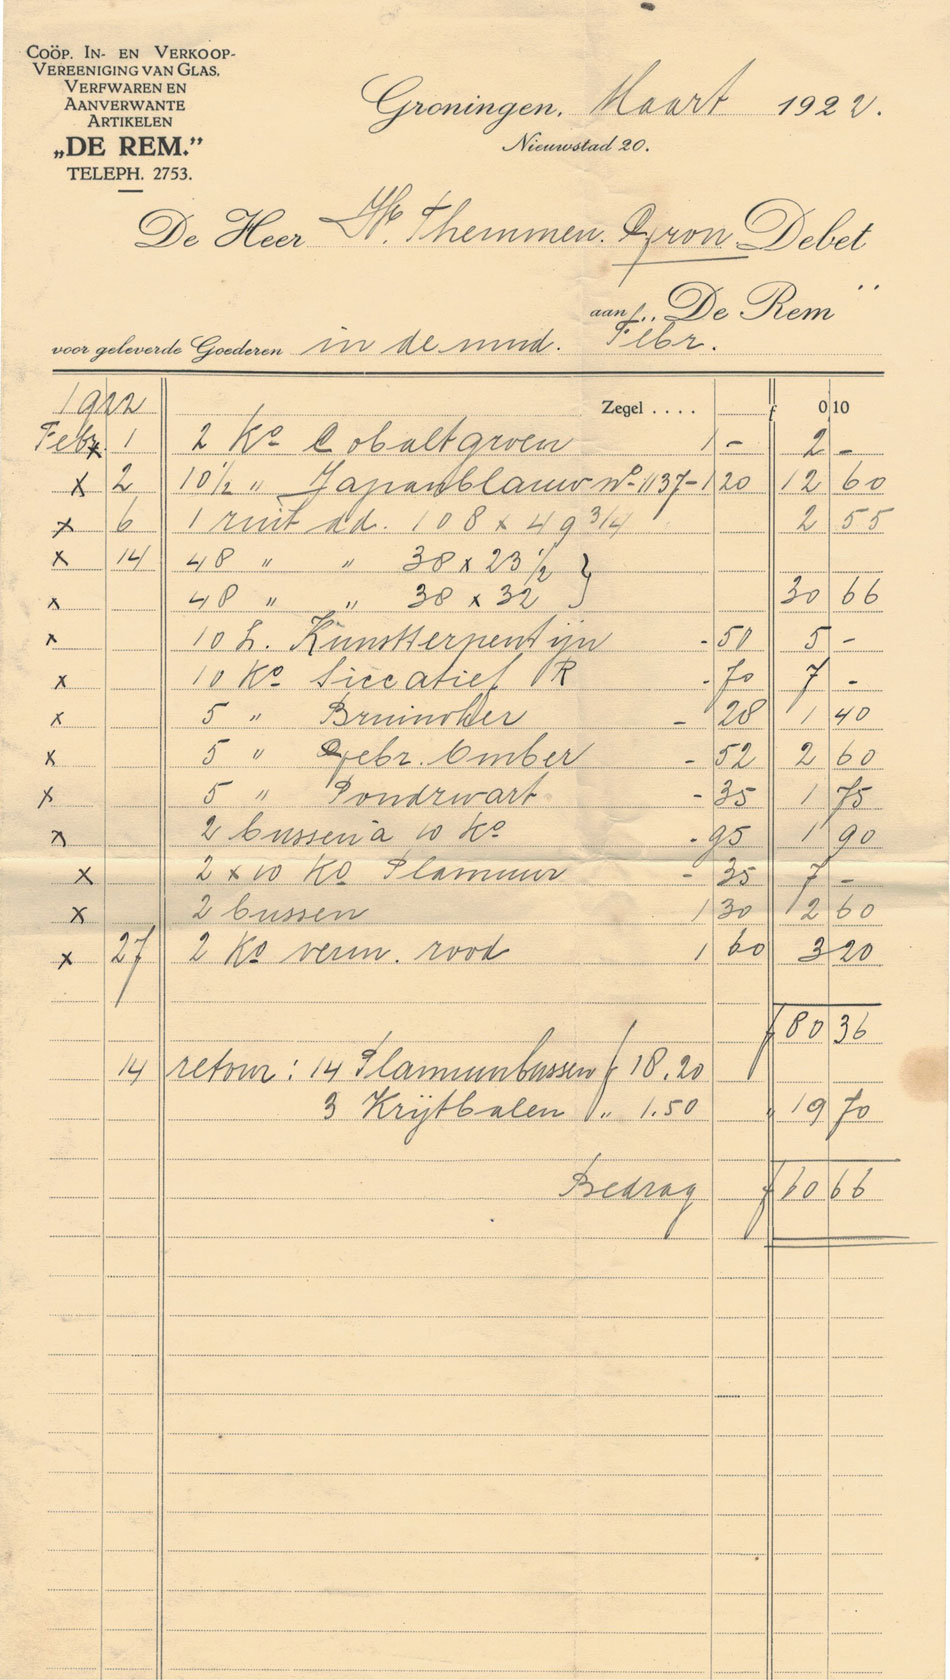 Coöp. In- en Verkoop-
Vereeniging van Glas,
Verfwaren en
Aanverwante
Artikelen
„DE REM.”
TELEPH. 2753.
Groningen, Maart 1922.
Nieuwstad 20.
De Heer W. Themmen. Gron. Debet
aan f. „De Rem”
voor geleverde Goederen in de mnd. Febr.
1922 Zegel . . . . f 0 10
Febr. 1 2 Ko Cobaltgroen 1 - 2 -
x 2 10½ " Japanblauw no 1137- 1 20 12 60
x 6 1 ruit dd. 108 x 49 3/4 2 55
x 14 48 " " 38 x 23 ½ }
x 48 " " 38 x 32 } 30 66
x 10 L. Kunstterpentijn - 50 5 -
x 10 Ko Siccatief R - 70 7 -
x 5 " Bruinoker - 28 1 40
x 5 " Gebr. Omber - 52 2 60
x 5 " Pondzwart - 35 1 75
x 2 bussen à 10 Ko - 95 1 90
x 2 x 10 Ko Plamuur - 35 7 -
x 2 bussen 1 30 2 60
x 27 2 Ko verm. rood 1 60 3 20
f 80 36
14 retour: 14 Plamuurbussen f 18.20
3 Krijtbalen " 1.50 " 19 70
Bedrag f 60 66